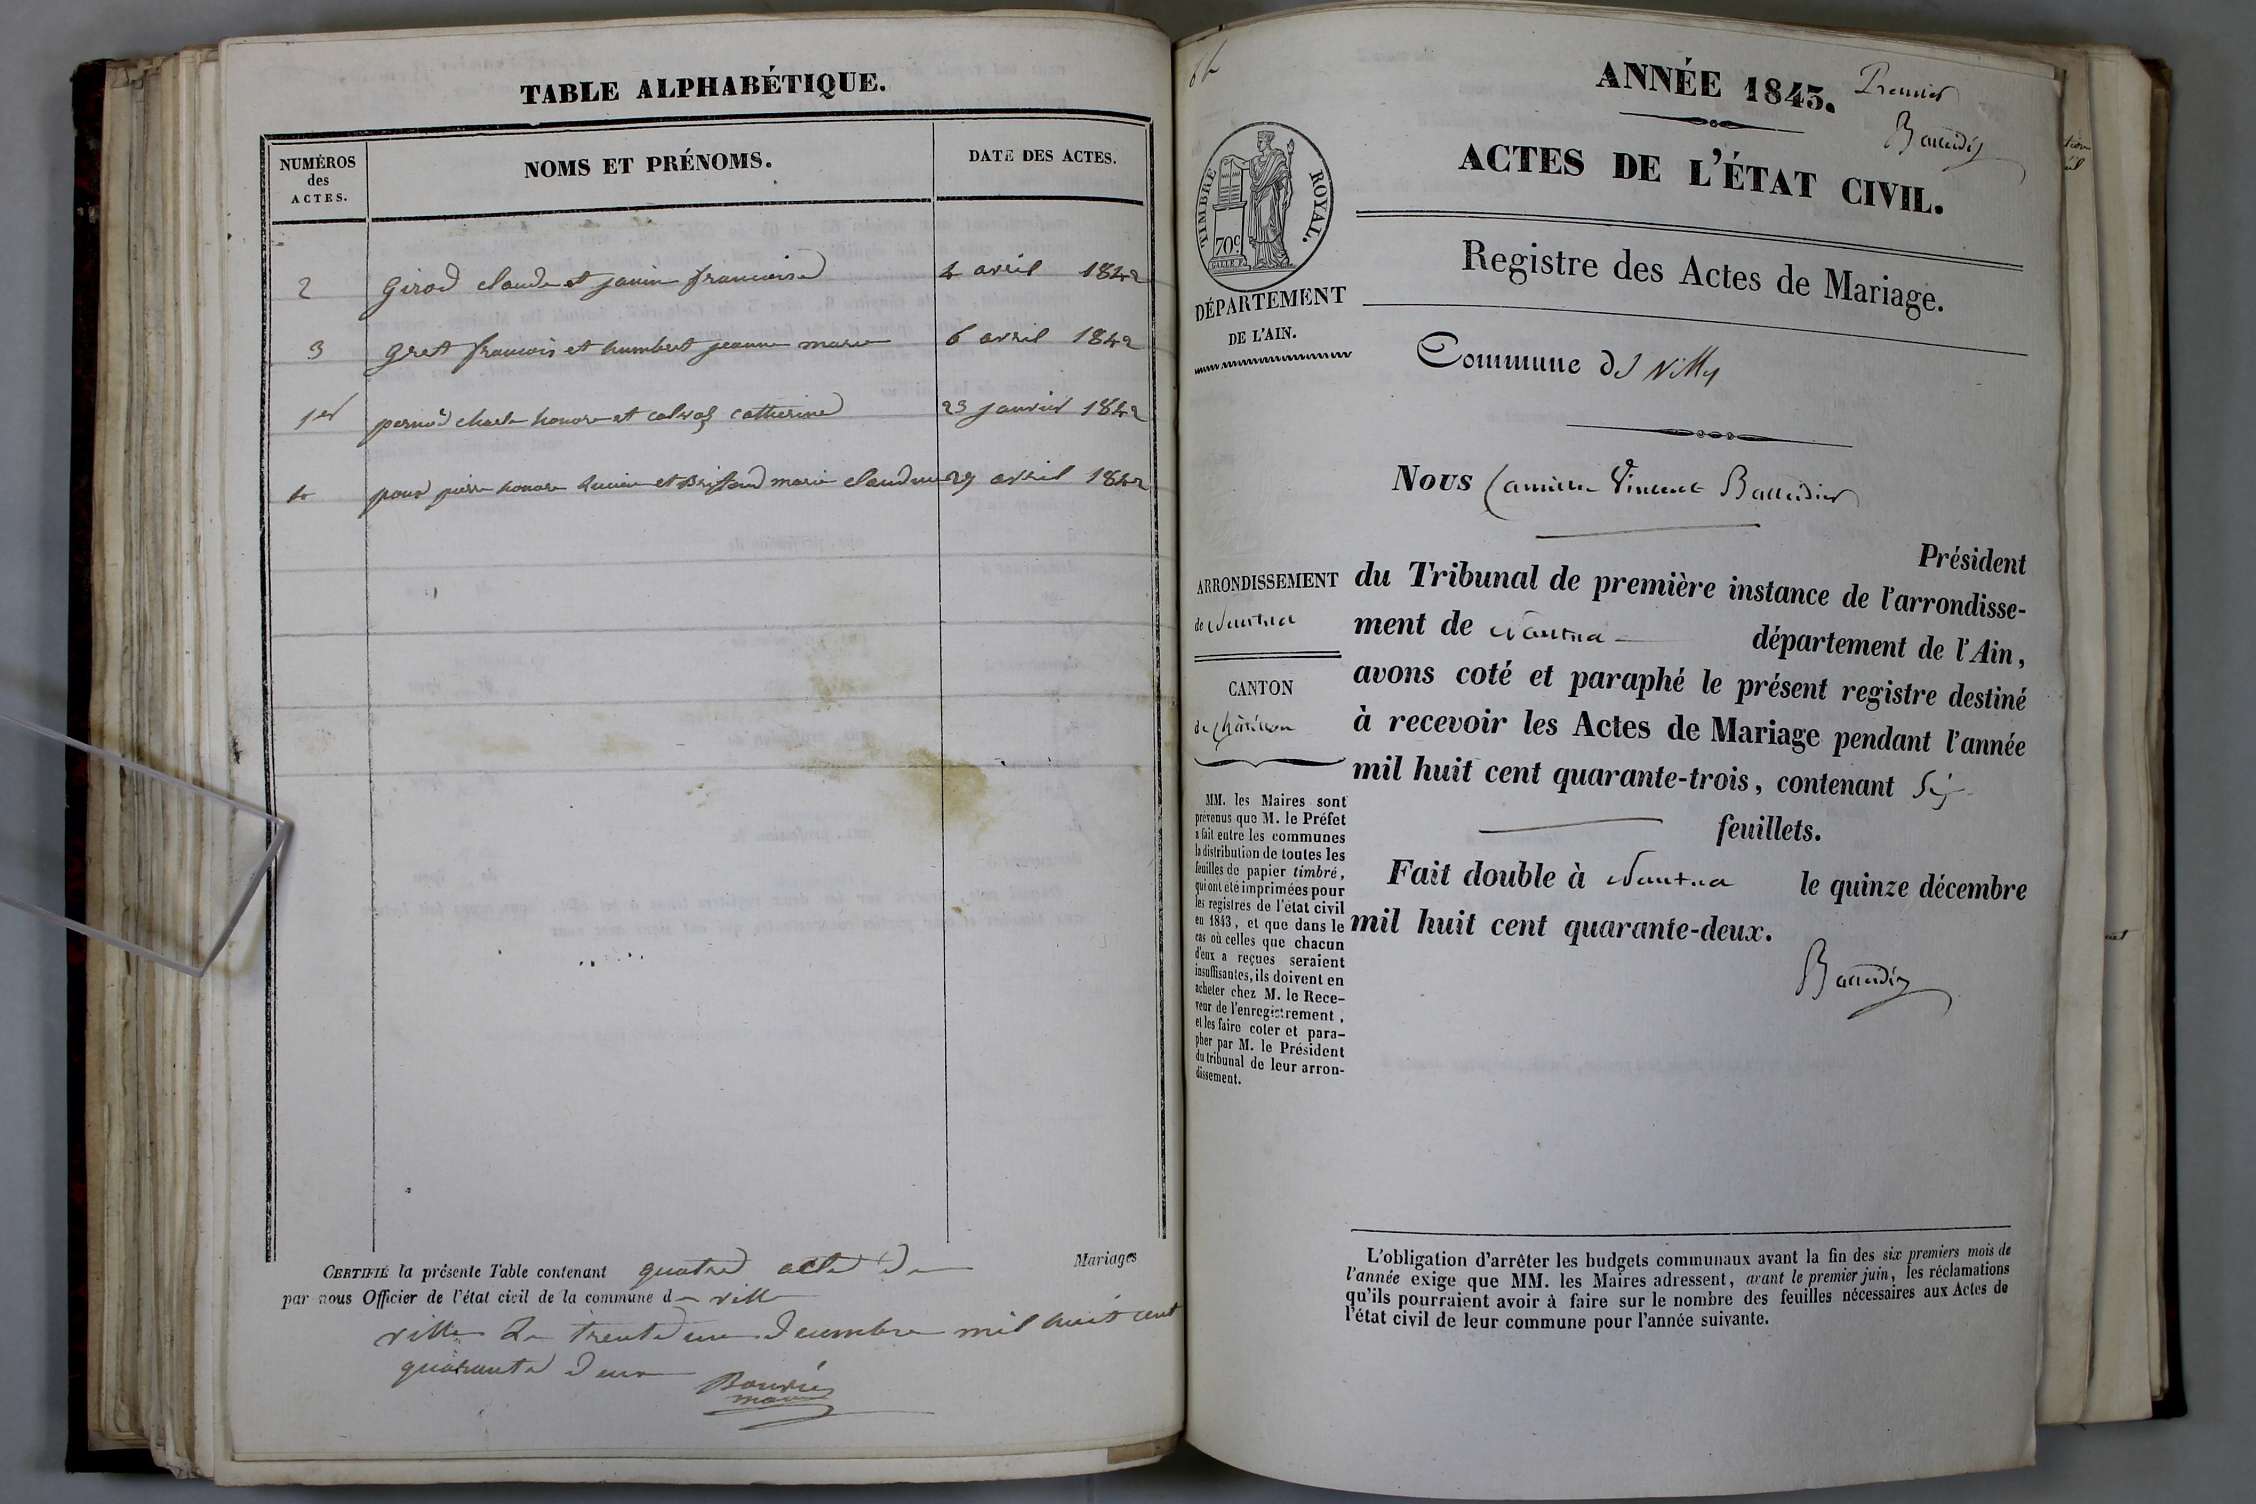 TABLE ALPHABÉTIQUE.
NUMÉROS
des
ACTES.
NOMS ET PRÉNOMS.
DATE DES ACTES.
2 girod claude et janin francoise 4 avril 1842
3 gret francois et humbert jeanne marie 6 avril 1842
1er charle honore et catherine 23 janvier 1842
4 pierre honore et marie claudine 29 avril 1842
CERTIFIÉ la présente Table contenant quatre acte de Mariages
par nous Officier de l'état civil de la commune de ville
ville le trente un decembre mil huit cent
quarante deux
maire
ANNÉE 1843.
Premier
Baudier
ACTES DE L'ÉTAT CIVIL.
TIMBRE ROYAL.
70c
Registre des Actes de Mariage.
DÉPARTEMENT
DE L'AIN.
Commune de Ville
Nous Camille Vincent
Président
ARRONDISSEMENT
de Nantua
CANTON
de Châtillon
du Tribunal de première instance de l'arrondisse-
ment de Nantua département de l'Ain,
avons coté et paraphé le présent registre destiné
à recevoir les Actes de Mariage pendant l'année
mil huit cent quarante-trois, contenant Six
feuillets.
Fait double à Nantua le quinze décembre
mil huit cent quarante-deux.
MM. les Maires sont
prévenus que M. le Préfet
a fait entre les communes
la distribution de toutes les
feuilles de papier timbré,
qui ont été imprimées pour
les registres de l'état civil
en 1843, et que dans le
cas où celles que chacun
d'eux a reçues seraient
insuffisantes, ils doivent en
acheter chez M. le Rece-
veur de l'enregistrement,
et les faire coter et para-
pher par M. le Président
du tribunal de leur arron-
dissement.
L'obligation d'arrêter les budgets communaux avant la fin des six premiers mois de
l'année exige que MM. les Maires adressent, avant le premier juin, les réclamations
qu'ils pourraient avoir à faire sur le nombre des feuilles nécessaires aux Actes de
l'état civil de leur commune pour l'année suivante.